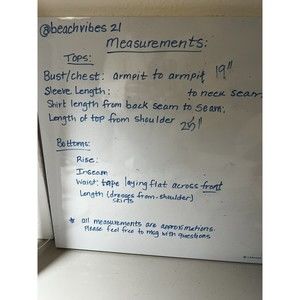 @beachvibes21
Measurements:
Tops:
Bust/chest: armpit to armpit 19"
Sleeve Length: to neck seam
Shirt length from back seam to seam:
Length of top from shoulder 25"
Bottoms:
Rise:
Inseam
Waist: tape laying flat across front
Length (dresses from shoulder)
skirts
* all measurements are approximations.
Please feel free to msg with questions